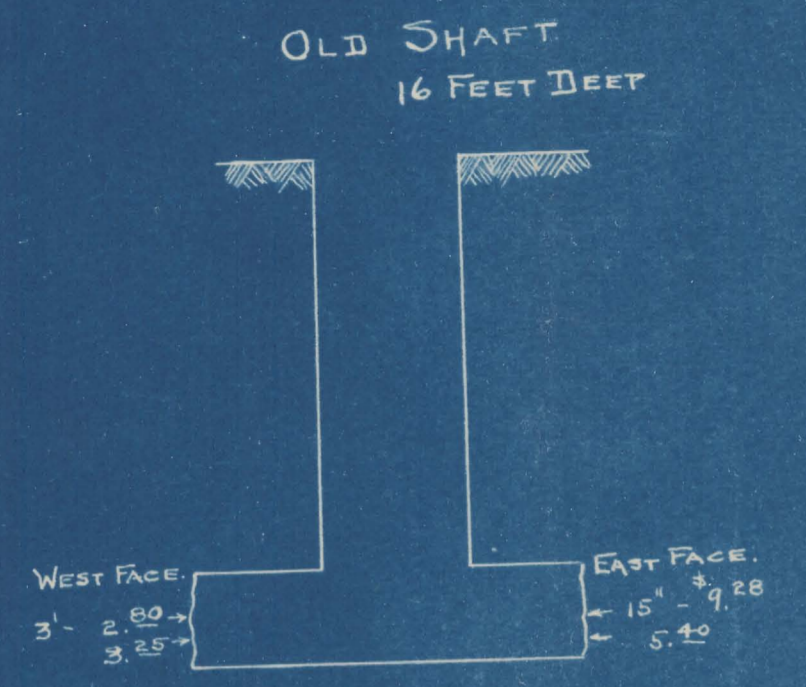 OLD SHAFT
16 FEET DEEP
WEST FACE.
3' - 2.80
3.25
EAST FACE.
15" - $9.28
5.40